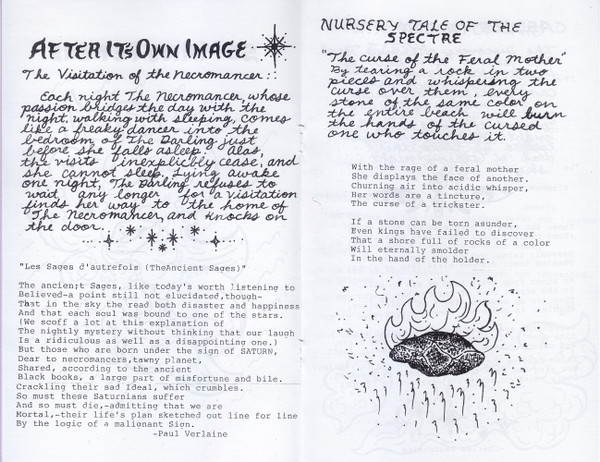 AFTER ITS OWN IMAGE
The Visitation of the Necromancer: :
Each night The Necromancer, whose
passion bridges the day with the
night, walking with sleeping, comes
like a freaky dancer into the
bedroom of The Darling just
before she falls asleep. Alas,
the visits inexplicbly cease, and
she cannot sleep. Lying awake
one night, The Darling refuses to
wait any longer for a visitation
finds her way to the home of
The Necromancer, and knocks on
the door...
"Les Sages d'autrefois (TheAncient Sages)"
The ancien;t Sages, like today's worth listening to
Believed-a point still not elucidated,though-
That in the sky the read both disaster and happiness
And that each soul was bound to one of the stars.
(We scoff a lot at this explanation of
The nightly mystery without thinking that our laugh
Is a ridiculous as well as a disappointing one.)
But those who are born under the sign of SATURN,
Dear to necromancers,tawny planet,
Shared, according to the ancient
Black books, a large part of misfortune and bile.
Crackling their sad Ideal, which crumbles.
So must these Saturnians suffer
And so must die,-admitting that we are
Mortal,-their life's plan sketched out line for line
By the logic of a malignant Sign.
-Paul Verlaine
NURSERY TALE OF THE
SPECTRE
"The curse of the Feral Mother"
By tearing a rock in two
pieces and whispering the
curse over them, every
stone of the same color on
the entire beach will burn
the hands of the cursed
one who touches it.
With the rage of a feral mother
She displays the face of another.
Churning air into acidic whisper,
Her words are a tincture,
The curse of a trickster.
If a stone can be torn asunder,
Even kings have failed to discover
That a shore full of rocks of a color
Will eternally smolder
In the hand of the holder.